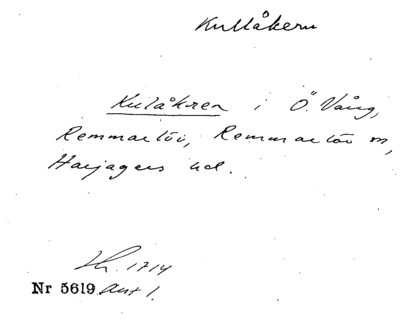 Kullåkern
Kulåkren i Ö. Vång,
Remmarlöv, Remmarlöv sn,
Harjagers hd.
Lh. 1714
Nr 5619 akt 1.